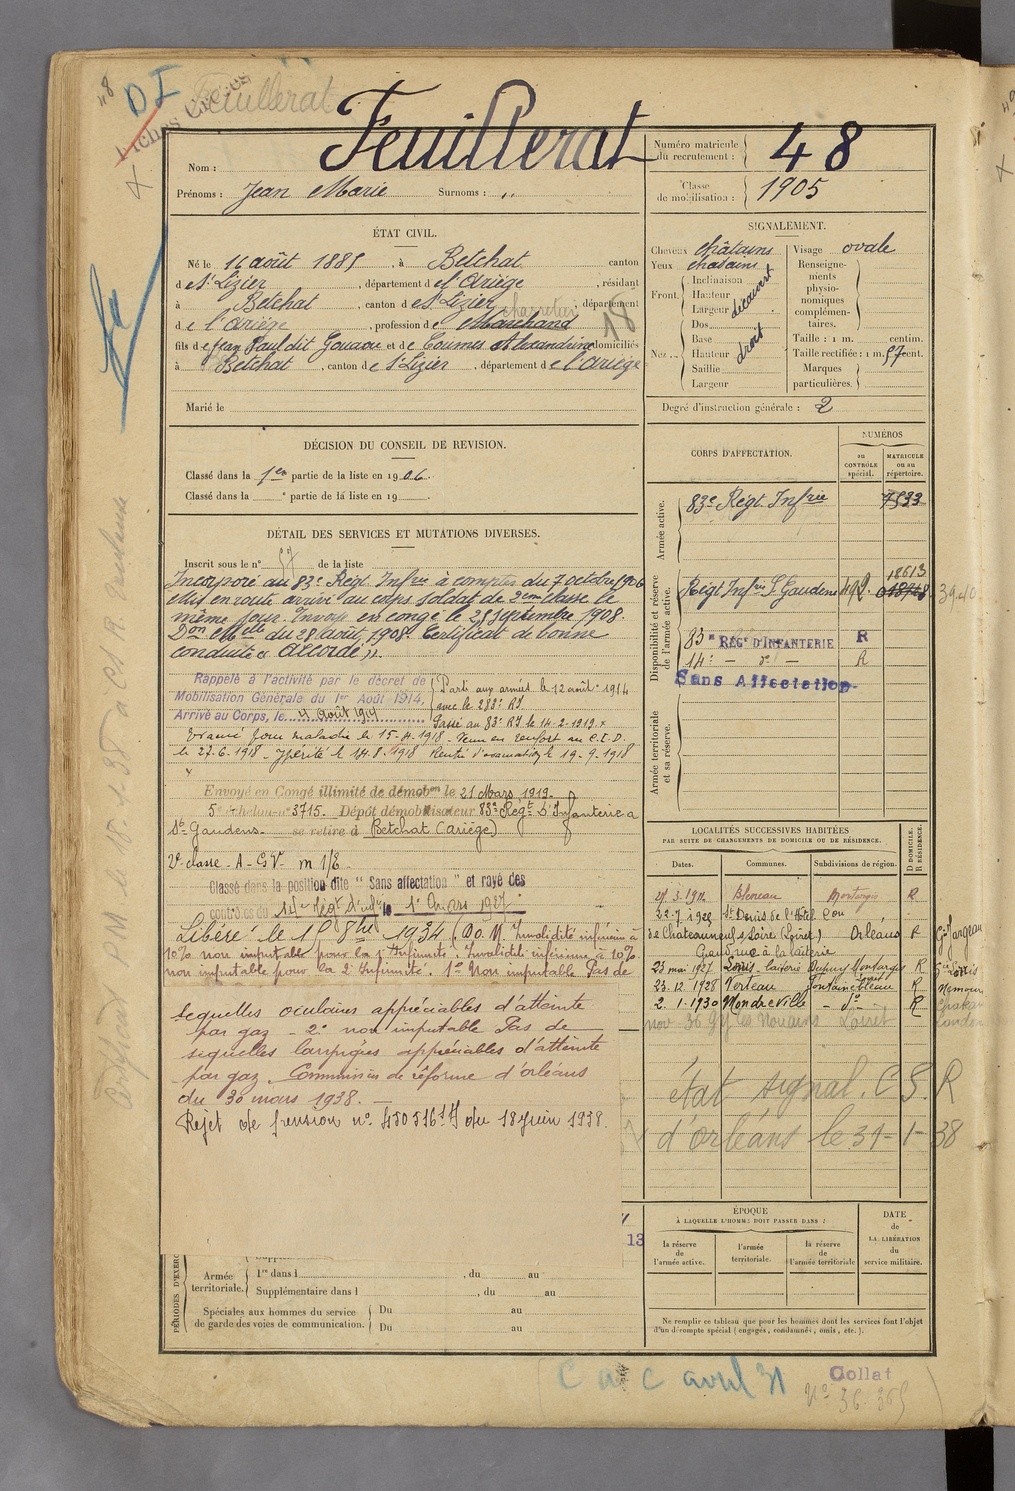 48
D I
Feuillerat
Fiches
Nom : Feuillerat
Prénoms : Jean Marie Surnoms : "
Numéro matricule du recrutement : 48
Classe de mobilisation : 1905
ÉTAT CIVIL.
Né le 16 août 1885, à Betchat canton
d e St Lizier, département d e l'Ariège, résidant
à Betchat, canton d e St Lizier, département
charretier
d e l'Ariège, profession d e Marchand
18
fils d e Jean Paul dit Gouaou et d e Coumes Alexandrine domiciliés
à Betchat, canton d e St Lizier, département d e l'Ariège
Marié le
SIGNALEMENT.
Cheveux châtains
Yeux châtains
Front. Inclinaison
Hauteur
Largeur
découvert
Nez. Dos
Base
Hauteur
Saillie
Largeur
droit
Visage ovale
Renseignements physionomiques complémentaires.
Taille : 1 m. centim.
Taille rectifiée : 1 m. 57 cent.
Marques particulières.
Degré d'instruction générale : 2
DÉCISION DU CONSEIL DE REVISION.
Classé dans la 1ère partie de la liste en 1906.
Classé dans la ° partie de la liste en 19
DÉTAIL DES SERVICES ET MUTATIONS DIVERSES.
Inscrit sous le n° 57 de la liste
Incorporé au 83e Régt Infrie à compter du 7 octobre 1906
Mis en route arrivé au corps soldat de 2eme classe le
même jour. Envoyé en congé le 25 septembre 1908.
Don Melle du 28 août 1908. Certificat de bonne
conduite « Accordé ».
Rappelé à l'activité par le décret de
Mobilisation Générale du 1er Août 1914,
Arrivé au Corps, le 4 août 1914
Parti aux armées le 12 août 1914
avec le 283e RI.
Passé au 83e RI le 14-2-1919 x
Evacué pour maladie le 15-4-1918 - Venu en renfort au C.I.D.
le 27-6-1918 - Ypérité le 14-8-1918 Rentré d'évacuation le 19-9-1918
Envoyé en Congé illimité de démobon le 21 Mars 1919.
5e échelon n° 3715. Dépôt démobilisateur 83e Régt D'Infanterie à
St Gaudens. se retire à Betchat (Ariège)
2e classe - A - G V - m 1/E
Classé dans la position dite "Sans affectation" et rayé des
contrôles du 14e Régt d'infie le 1er Mars 1927
Libéré le 15 8bre 1934 (D.O.M. Invalidité inférieure à
10% non imputable pour la 1e Infirmité. Invalidité inférieure à 10%
non imputable pour la 2e Infirmité. 1° Non imputable Pas de
sequelles oculaires appréciables d'atteinte
par gaz - 2° non imputable Pas de
sequelles laryngées appréciables d'atteinte
par gaz. Commission de réforme d'orléans
du 30 mars 1938. —
Rejet de pension n° 450516 du 18 juin 1938.
CORPS D'AFFECTATION.
NUMÉROS
au CONTRÔLE spécial.
MATRICULE ou au répertoire.
Armée active.
83e Régt Infrie 7533
Disponibilité et réserve de l'armée active.
18613
Régt Infrie St Gaudens 492
83e RÉGt D'INFANTERIE R
14e — do — R
Sans Affectation
Armée territoriale et sa réserve.
LOCALITÉS SUCCESSIVES HABITÉES
PAR SUITE DE CHANGEMENTS DE DOMICILE OU DE RÉSIDENCE.
Dates. Communes. Subdivisions de région. D DOMICILE. R RÉSIDENCE.
Bléneau Montargis R
22.7.1925 St Denis de l'Hôtel
Châteauneuf s/Loire (Loiret) Orléans R
Grande rue à la laiterie
23 mai 1927 laiterie Dupuy Montargis R
23.12.1928 Fontainebleau R
2.1.1930 Mondreville do R
nov 36 Gy les Nonains Loiret
état signal. C S R
d'orléans le 31-1-38
13
ÉPOQUE
À LAQUELLE L'HOMME DOIT PASSER DANS :
la réserve de l'armée active.
l'armée territoriale
la réserve de l'armée territoriale
DATE de LA LIBÉRATION du service militaire.
PÉRIODES D'EXERC
Armée territoriale.
1re dans l , du au
Supplémentaire dans l , du au
Spéciales aux hommes du service de garde des voies de communication.
Du au
Du au
Ne remplir ce tableau que pour les hommes dont les services font l'objet
d'un décompte spécial (engagés, condamnés, omis, etc.).
C a c avril 31
Collat
N° 36-365